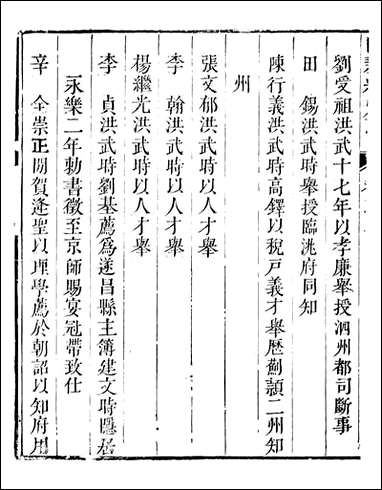 劉受祖洪武十七年以孝廉舉授泗州都司斷事
田　錫洪武時舉授臨洮府同知
陳行義洪武時高鐸以稅戸義才舉歷薊潁二州知
州
張文郁洪武時以人才舉
李　翰洪武時以人才舉
楊繼光洪武時以人才舉
李　貞洪武時劉基薦爲遂昌縣主簿建文時隱居
永樂二年勅書徵至京師賜宴冠帶致仕
辛　全崇正閒賀逢聖以理學薦於朝詔以知府用